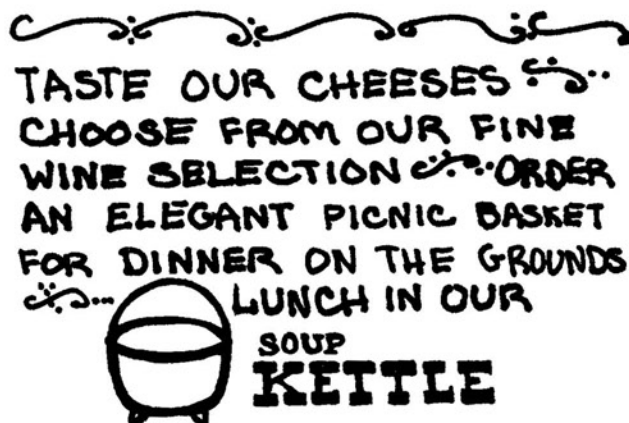 TASTE OUR CHEESES
CHOOSE FROM OUR FINE
WINE SELECTION ORDER
AN ELEGANT PICNIC BASKET
FOR DINNER ON THE GROUNDS
LUNCH IN OUR
SOUP
KETTLE